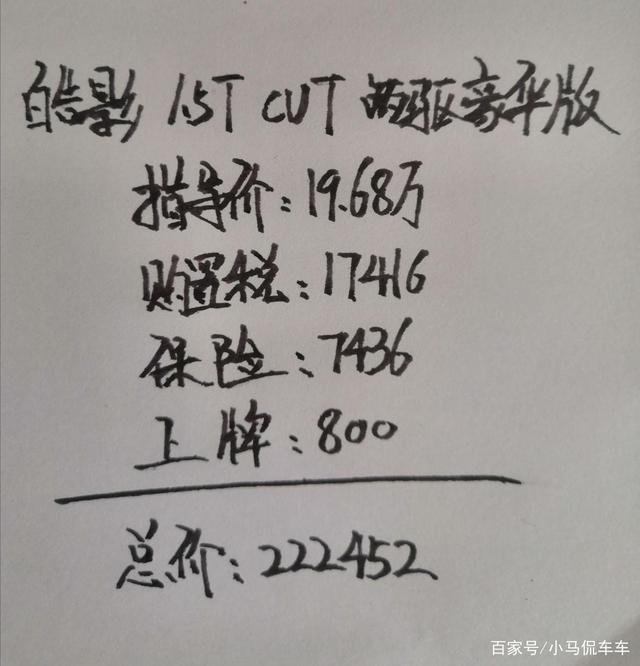 皓影 1.5T CUT 两驱豪华版
指导价：19.68万
购置税：17416
保险：7436
上牌：800
总价：222452
百家号/小马侃车车